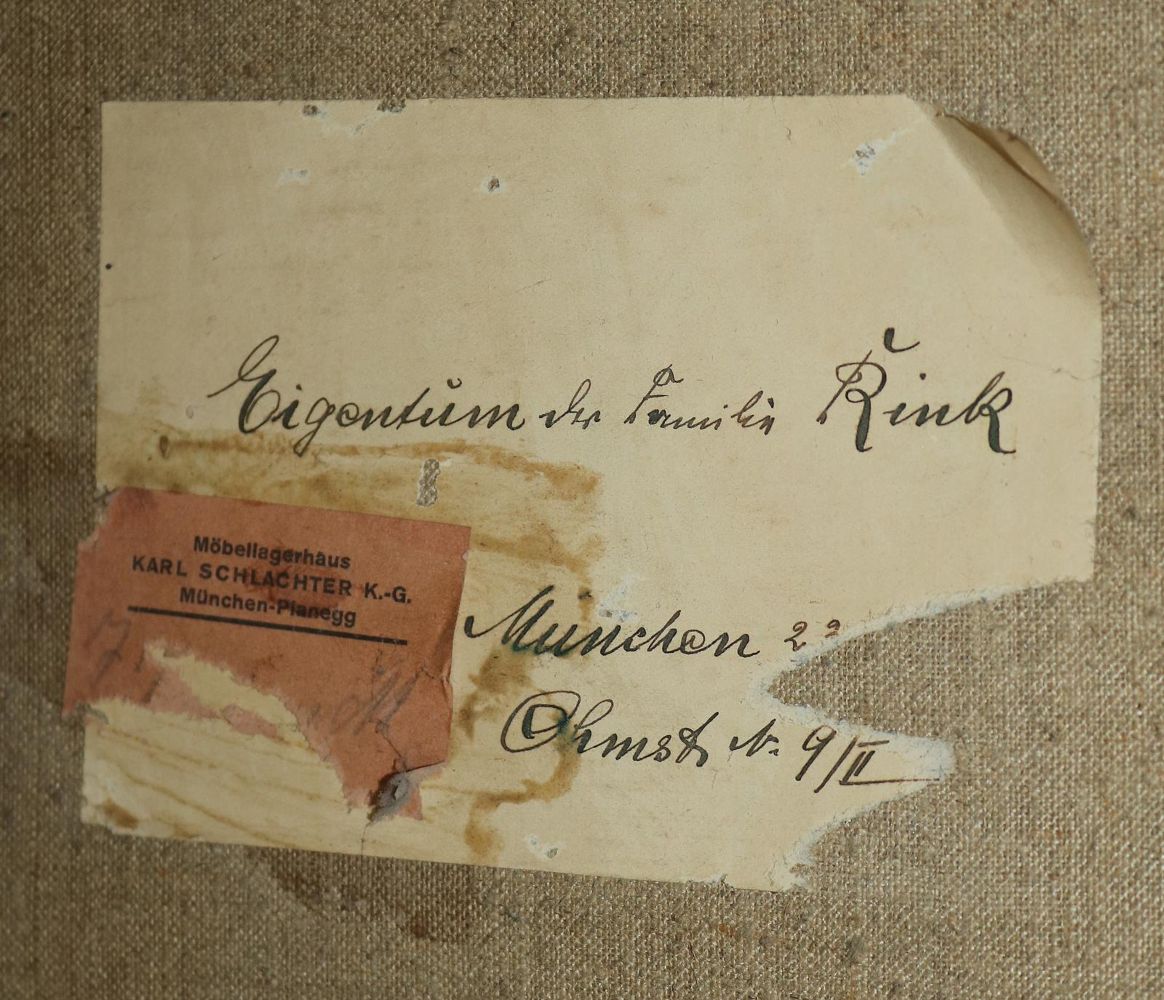 Eigentum der Familie Rink
Möbellagerhaus
KARL SCHLACHTER K.-G.
München-Planegg
München 2
Ohmstr. Nr. 9/II